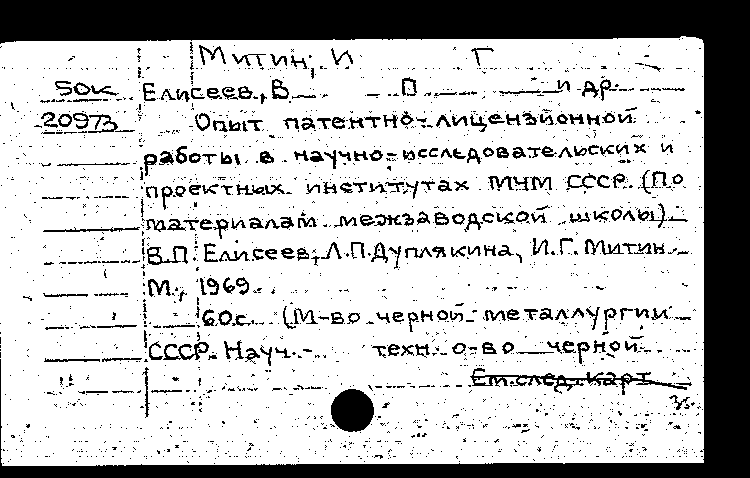 Митин, И Г
50к Елисеев, В П и др.
20973 Опыт патентно-лицензионной
работы в научно-исследовательских и
проектных институтах МЧМ СССР. (По
материалам межзаводской школы).
В.П. Елисеев, Л.П. Дуплякина, И.Г. Митин.
М., 1969.
60с. (М-во черной металлургии
СССР. Науч.- техн. о-во черной
См. след. карт